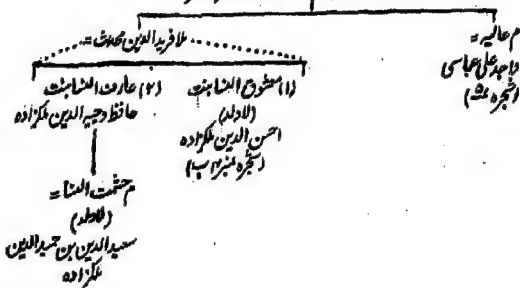 م عالیہ =
واجد علی عباسی
(شجرہ ۵)
ملا فرید الدین محدث =
(۱) ممنوع النسا بنت
(لاولد)
احسن الدین ملکزادہ
(شجرہ نمبر ۱ ب)
(۲) عارف النسا بنت
حافظ وجیہ الدین ملکزادہ
م حشمت النسا =
(لاولد)
سعید الدین بن حمید الدین
ملکزادہ